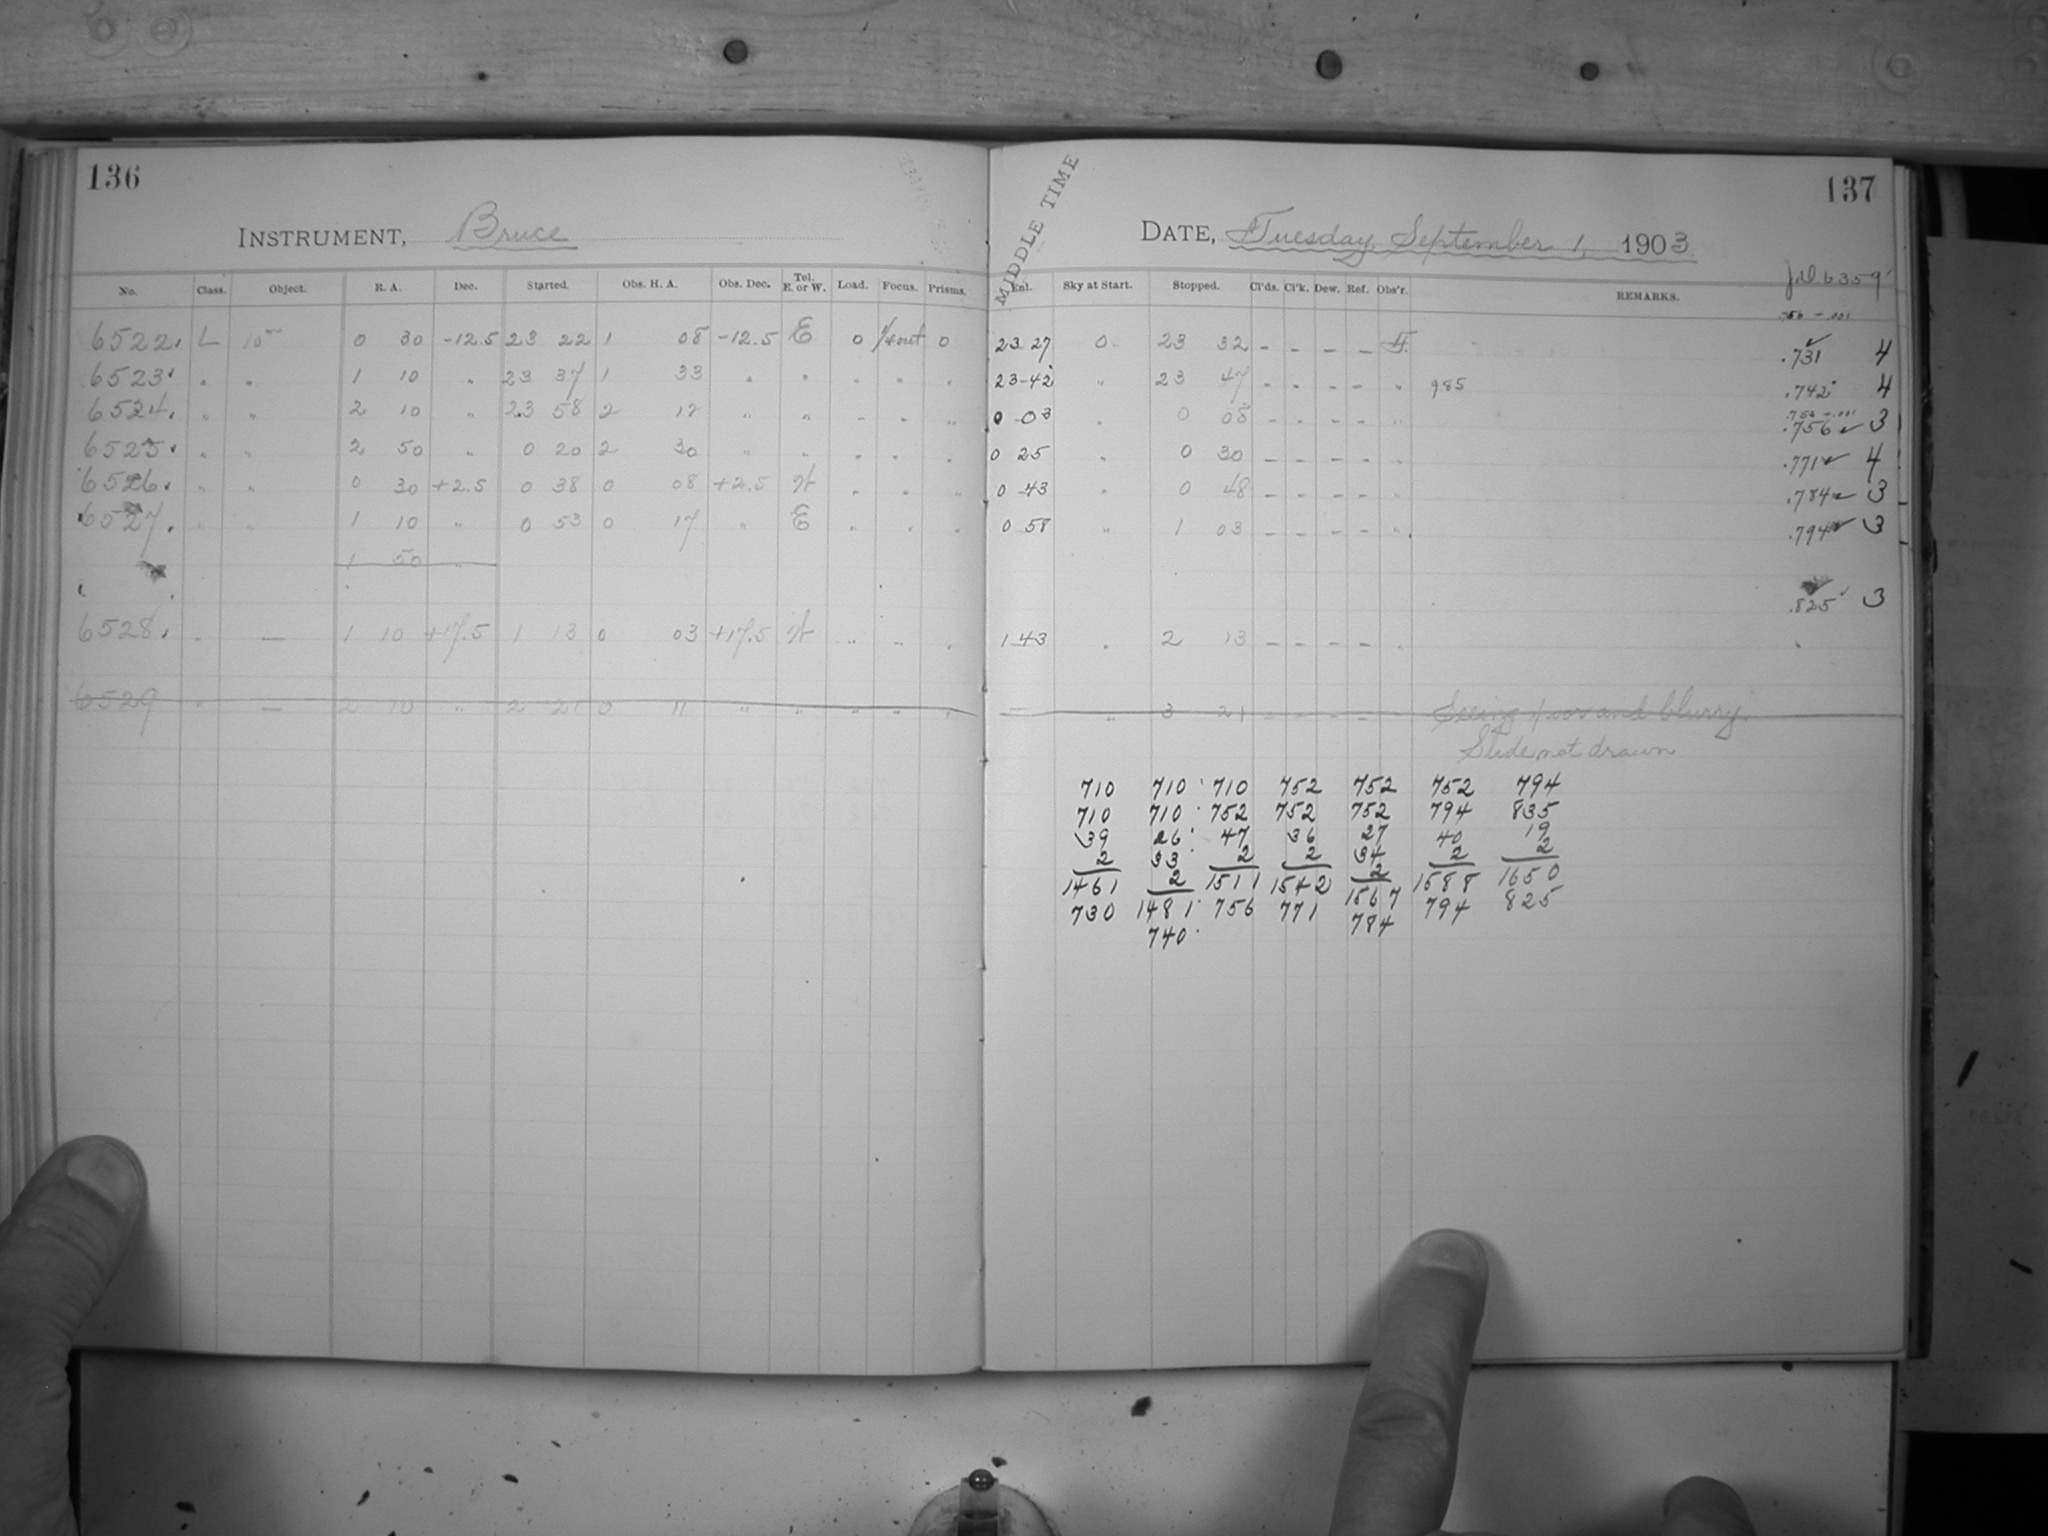 136
INSTRUMENT, Bruce
No. Class. Object. R. A. Dec. Started. Obs. H. A. Obs. Dec. Tel. E. or W. Load. Focus. Prisms.
6522. L 10m 0 30 -12.5 23 22 1 08 -12.5 E 0 1/4 out 0
6523. " " 1 10 " 23 37 1 33 " " " " "
6524. " " 2 10 " 23 58 2 12 " " " " "
6525. " " 2 50 " 0 20 2 30 " " " " "
6526. " " 0 30 +2.5 0 38 0 08 +2.5 W " " "
6527. " " 1 10 " 0 53 0 17 " E " " "
1 50 "
6528. " — 1 10 +17.5 1 13 0 03 +17.5 W " " "
6529 " — 2 10 " 2 21 0 11 " " " " "
137
MIDDLE TIME
DATE, Tuesday, September 1, 1903
Enl. Sky at Start. Stopped. Cl'ds. Cl'k. Dew. Ref. Obs'r. REMARKS.
J.D. 6359
23 27 0 23 32 - - - - .731 4
23-42 " 23 47 - - - - " 985 .742 4
0 03 " 0 08 - - - - " .756 3
0 25 " 0 30 - - - - " .771 4
0 43 " 0 48 - - - - " .784 3
0 58 " 1 03 - - - - " .794 3
.825 3
1 43 " 2 13 - - - - "
— " 3 21 - - - - " Seeing poor and blurry.
Slide not drawn
710 710 710 752 752 752 794
710 710 752 752 752 794 835
39 26 47 36 27 40 19
2 33 2 2 34 2 2
1461 2 1511 1542 2 1588 1650
730 1481 756 771 1567 794 825
740 784